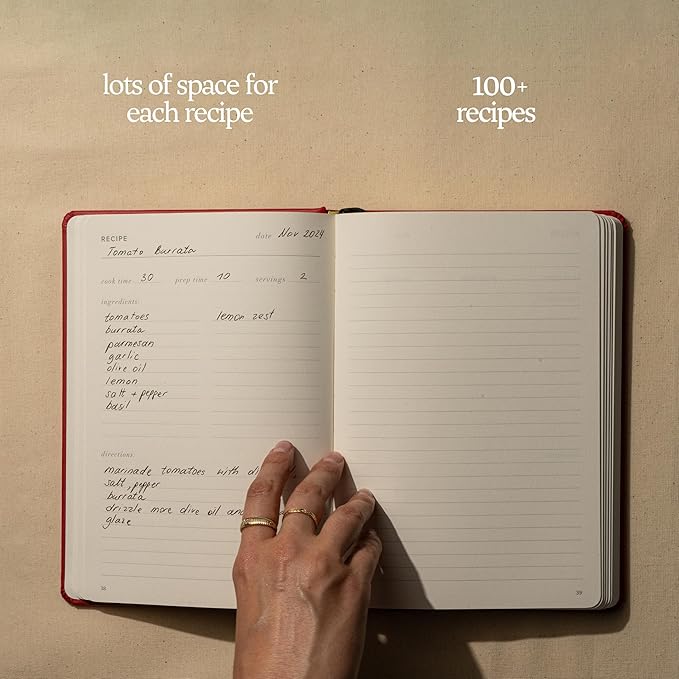 lots of space for
each recipe
100+
recipes
RECIPE
date Nov 2024
Tomato Burrata
cook time 30 prep time 10 servings 2
ingredients:
tomatoes lemon zest
burrata
parmesan
garlic
olive oil
lemon
salt + pepper
basil
directions:
marinade tomatoes with
salt, pepper
burrata
drizzle more olive oil and
glaze
38
39